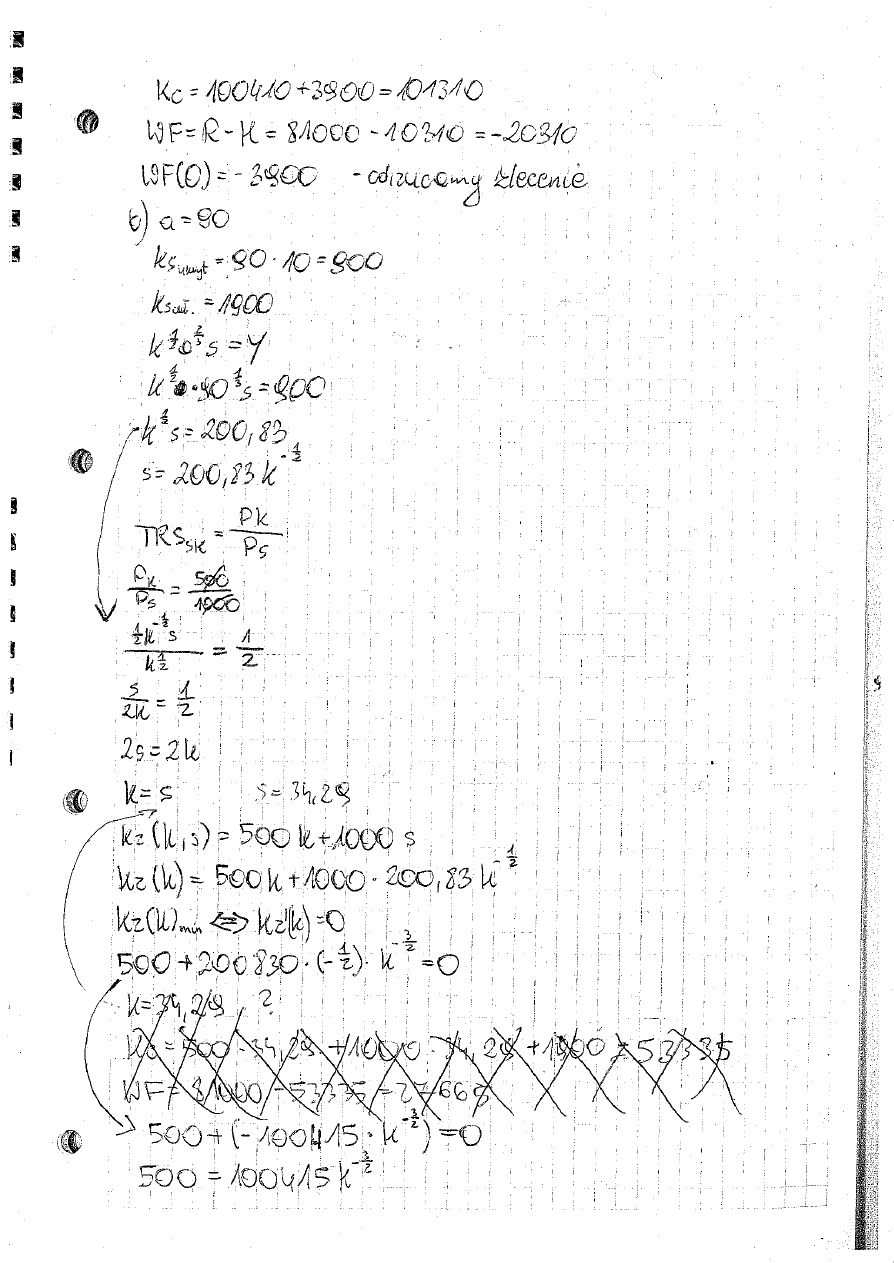 Kc = 100410 + 3900 = 101310
WF = R - K = 81000 - 10310 = -20310
WF(0) = -3900 - odrzucamy zlecenie
b) a = 90
ks = 90 · 10 = 900
ks = 1900
k^{1/3} a^{2/3} s = y
k^{1/2} · 90^{1/3} s = 900
k^{1/2} s = 200,83
s = 200,83 k^{-1/2}
TRS_{sk} = Pk/Ps
Pk/Ps = 500/1000
(1/2 k^{-1/2} s)/(k^{1/2}) = 1/2
s/2k = 1/2
2s = 2k
k = s s = 34,29
kz(k,s) = 500 k + 1000 s
kz(k) = 500k + 1000 · 200,83 k^{-1/2}
kz(k)min ⟺ kz'(k) = 0
500 + 200830 · (-1/2) · k^{-3/2} = 0
k = 34,29 ?
Kc = 500 · 34,29 + 1000 · 34,29 + 1900 = 53335
WF = 81000 - 53335 = 27665
500 + (-100415 · k^{-3/2}) = 0
500 = 100415 k^{-3/2}